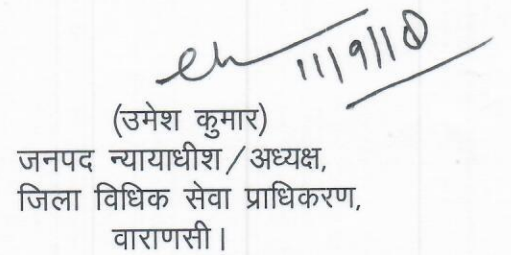 11/9/18
(उमेश कुमार)
जनपद न्यायाधीश/अध्यक्ष,
जिला विधिक सेवा प्राधिकरण,
वाराणसी।